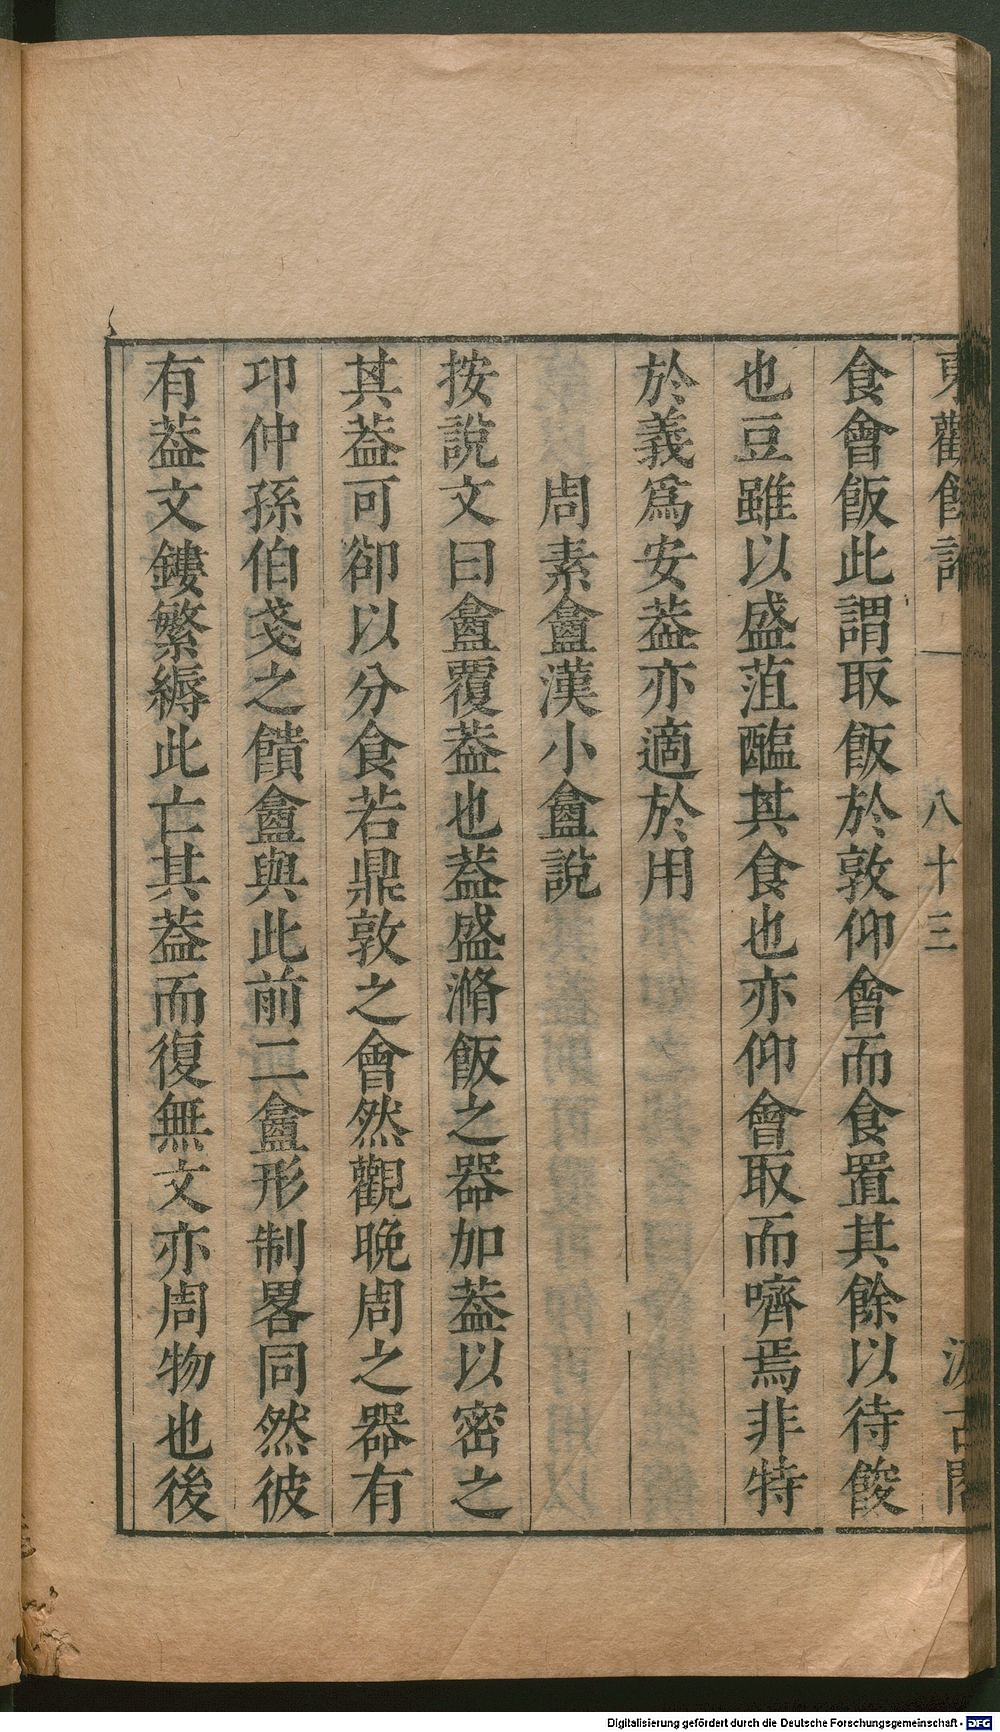 東觀餘論
八十三
汲古閣
食會飯此謂取飯於敦仰會而食置其餘以待餕
也豆雖以盛菹醢其食也亦仰會取而嚌焉非特
於義爲安葢亦適於用
周素盦漢小盦說
按說文曰盦覆葢也葢盛滫飯之器加葢以密之
其葢可卻以分食若鼎敦之會然觀晚周之器有
卭仲孫伯戔之饙盦與此前二盦形制畧同然彼
有葢文鏤繁縟此亡其葢而復無文亦周物也後
Digitalisierung gefördert durch die Deutsche Forschungsgemeinschaft - DFG